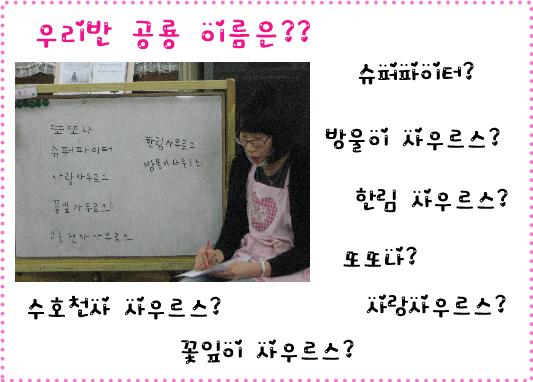 우리반 공룡 이름은??
또또나
슈퍼파이터
사랑사우르스
꽃잎사우르스
수호천사사우르스
한림사우르스
방울이사우르스
슈퍼파이터?
방울이 사우르스?
한림 사우르스?
또또나?
수호천사 사우르스?
사랑사우르스?
꽃잎이 사우르스?